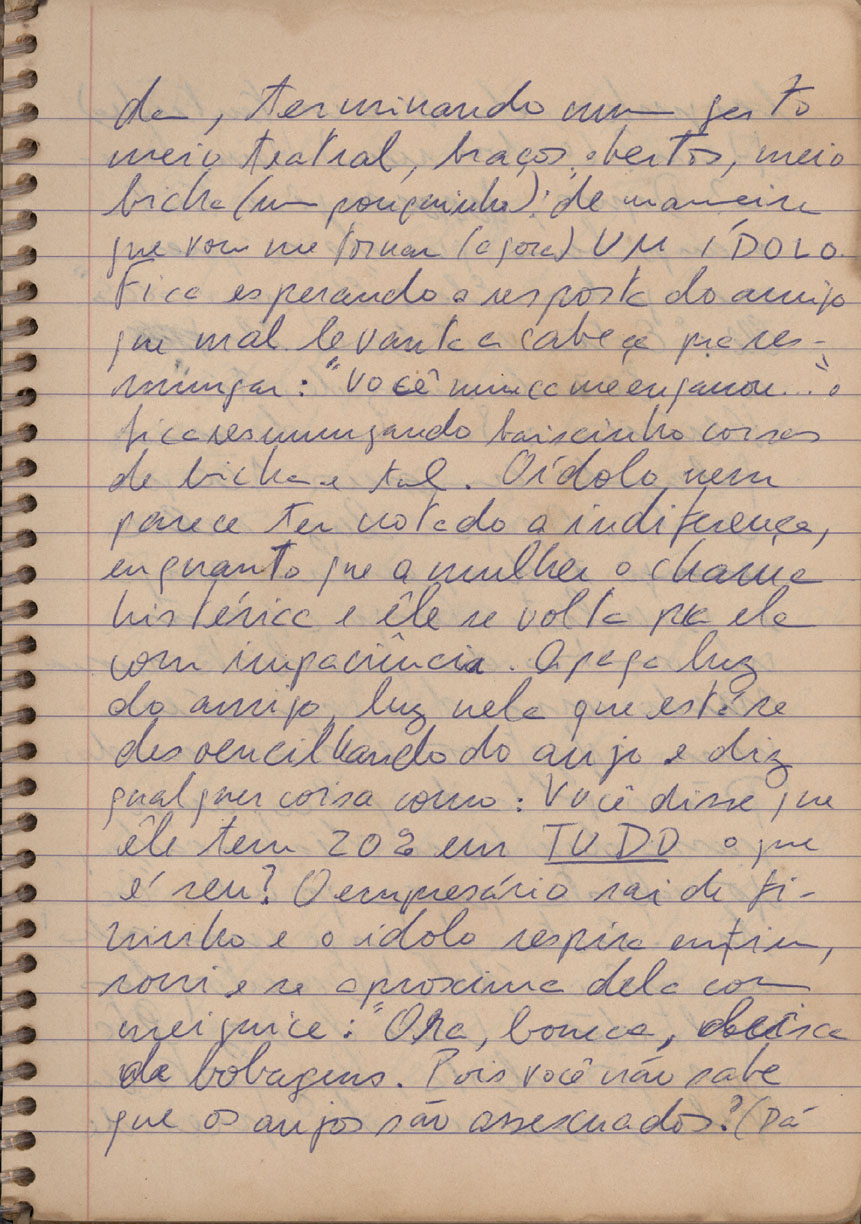 da, terminando num gesto
meio teatral, braços abertos, meio
bicha (um pouquinho): de maneira
que vou me tornar (agora) UM ÍDOLO.
Fica esperando a resposta do amigo
que mal levanta a cabeça pra res-
mungar: "Você nunca me enganou..." e
fica resmungando baixinho coisas
de bicha e tal. O ídolo nem
parece ter notado a indiferença,
enquanto que a mulher o chama
histérica e êle se volta pra ela
com impaciência. Apaga luz
do amigo, luz nela que está se
desvencilhando do anjo e diz
qualquer coisa como: Você disse que
êle tem 20% em TUDO o que
é seu? O empresário sai de fi-
ninho e o ídolo respira enfim,
sorri e se aproxima dela com
meiguice: "Ora, boneca, deixa
de bobagens. Pois você não sabe
que os anjos são assexuados? (Dá